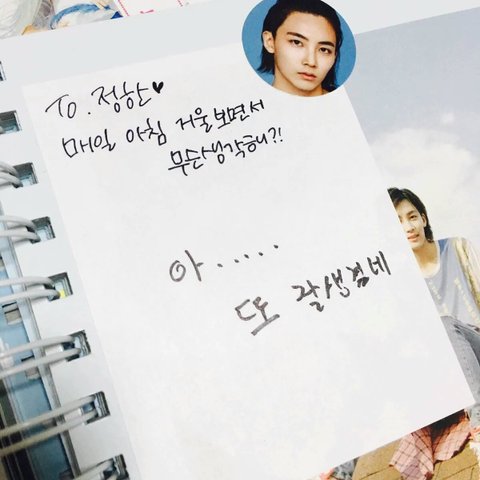 To. 정한♥
매일 아침 거울보면서
무슨생각해?!
아.....
또 잘생겼네